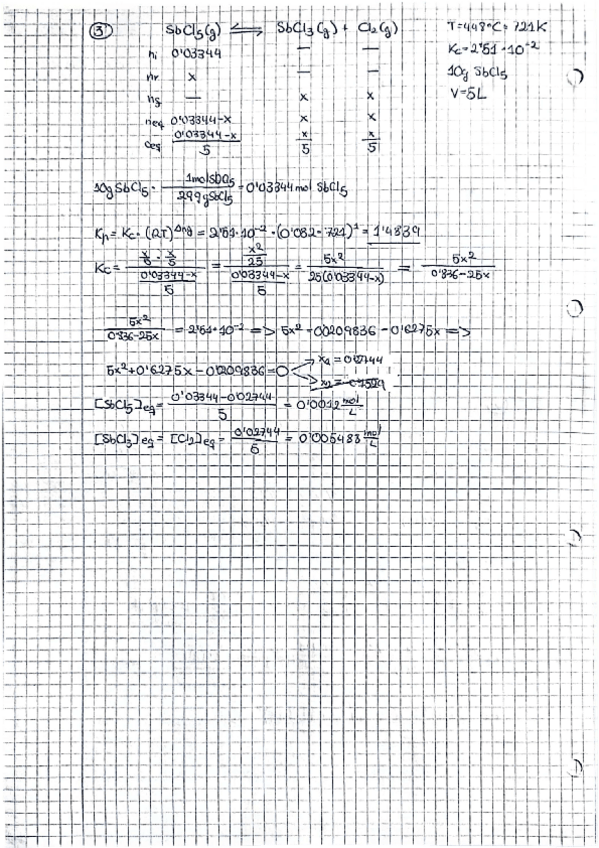 ③ SbCl₅(g) ⇌ SbCl₃(g) + Cl₂(g) T=448ºC= 721K
ni 0'03344 — — Kc=2'51·10⁻²
nr x — — 10g SbCl₅
ng — x x V=5L
neq 0'03344-x x x
ceq (0'03344-x)/5 x/5 x/5
10g SbCl₅ · 1mol SbCl₅/299g SbCl₅ = 0'03344 mol SbCl₅
Kp = Kc · (RT)^Δng = 2'51·10⁻² · (0'082 · 721)¹ = 1'4839
Kc = (x/5 · x/5)/((0'03344-x)/5) = (x²/25)/((0'03344-x)/5) = 5x²/(25(0'03344-x)) = 5x²/(0'836-25x)
5x²/(0'836-25x) = 2'51·10⁻² => 5x² = 0'0209836 - 0'6275x =>
5x²+0'6275x-0'0209836=0 x₁ = 0'02744
x₂ =
[SbCl₅]eq = (0'03344-0'02744)/5 = 0'0012 mol/L
[SbCl₃]eq = [Cl₂]eq = 0'02744/5 = 0'005483 mol/L